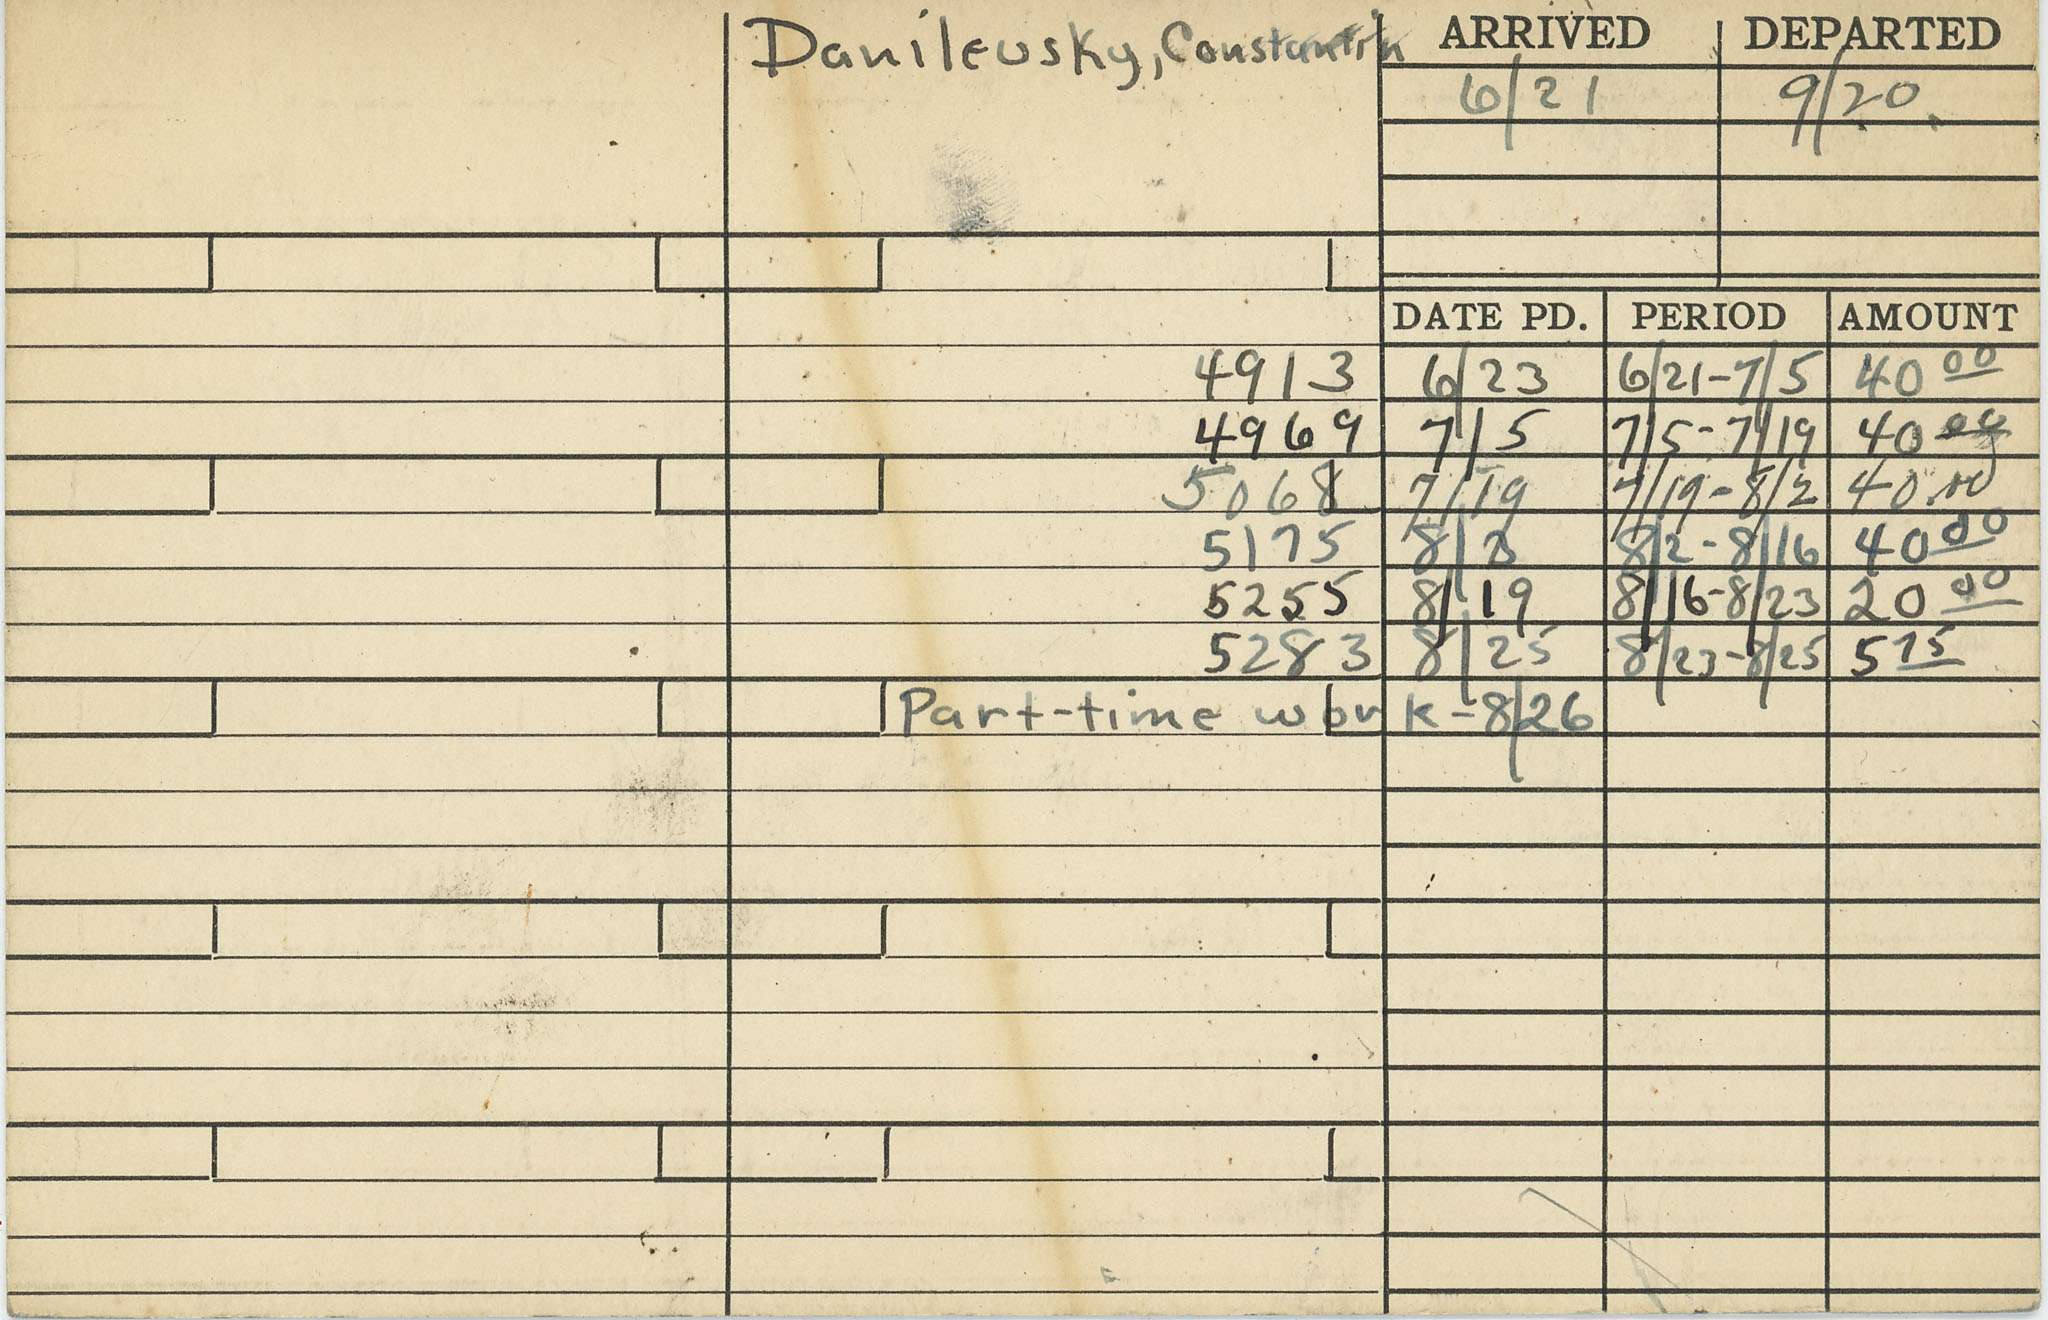 Danilevsky, Constantin
ARRIVED DEPARTED
6/21 9/20
DATE PD. PERIOD AMOUNT
4913 6/23 6/21-7/5 40 00
4969 7/5 7/5-7/19 40 00
5068 7/19 7/19-8/2 40.00
5175 8/3 8/2-8/16 40 00
5255 8/19 8/16-8/23 20 00
5283 8/25 8/23-8/25 5 75
Part-time work-8/26